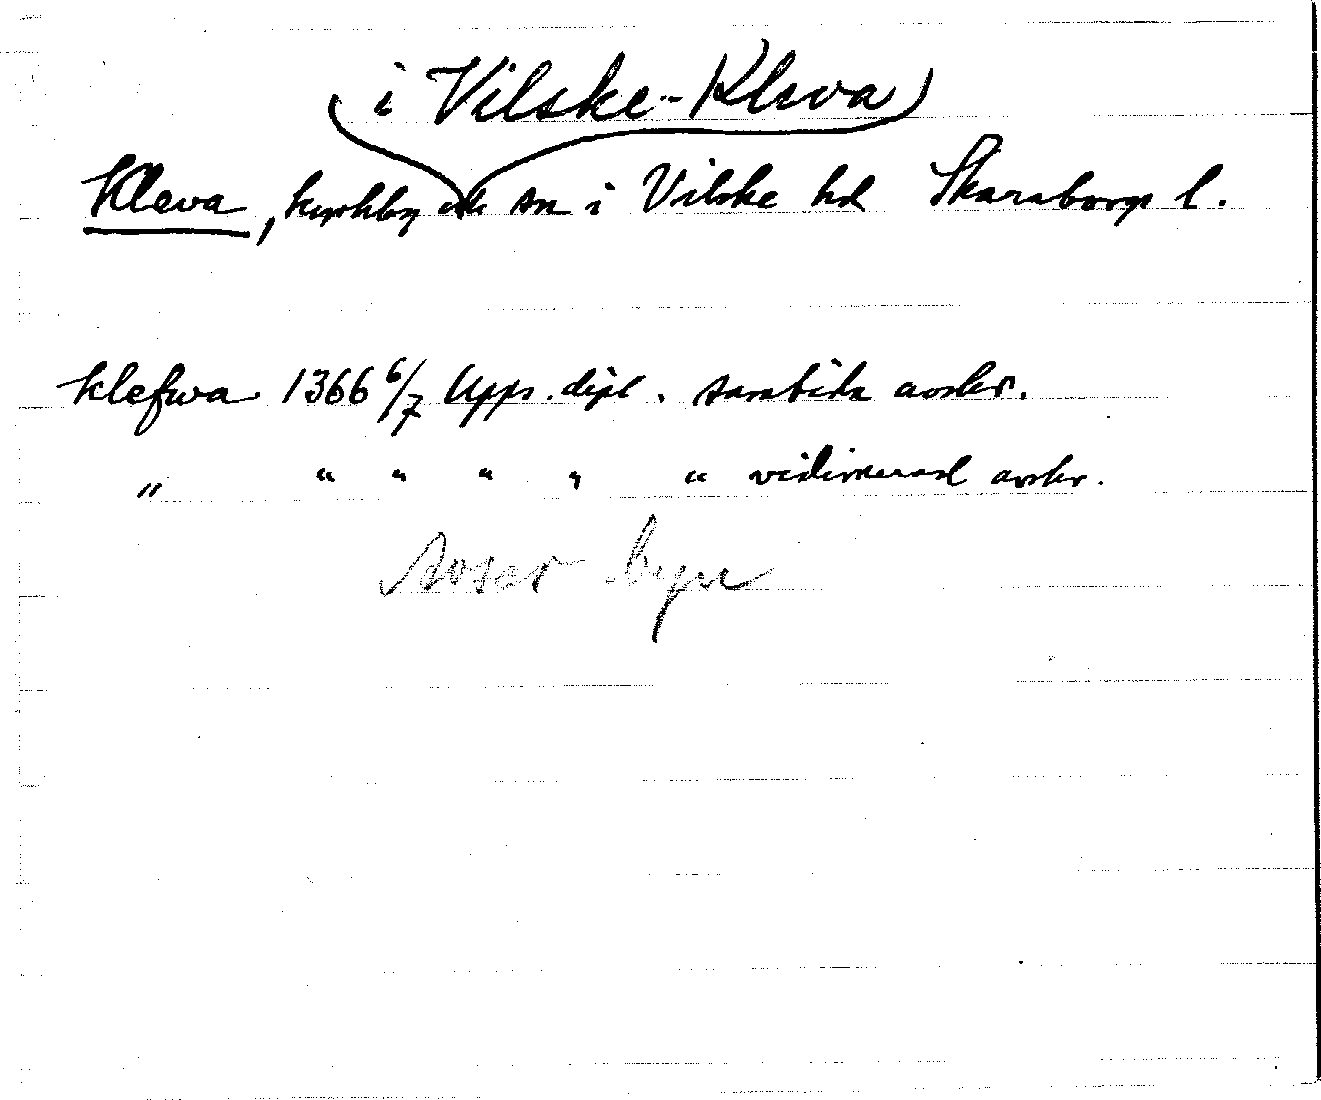 i Vilske-Kleva
Kleva, kyrkby och sn i Vilske hd Skaraborgs l.
klefwa 1366 6/7 Upps. dipl. samtida avskr.
" " " " " " vidimerad avskr.
avser byn